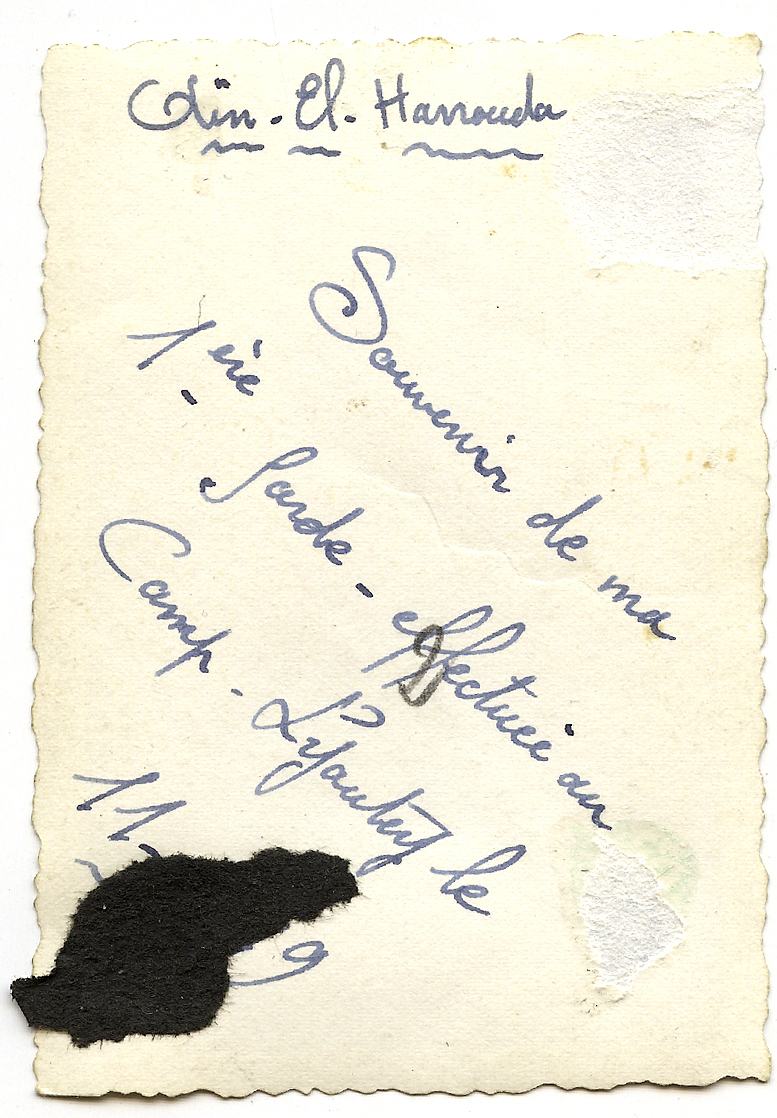 Aïn-El-Harrouda
Souvenir de ma
1ère Garde - effectuée au
Camp - Lyautey le
11-
9
9